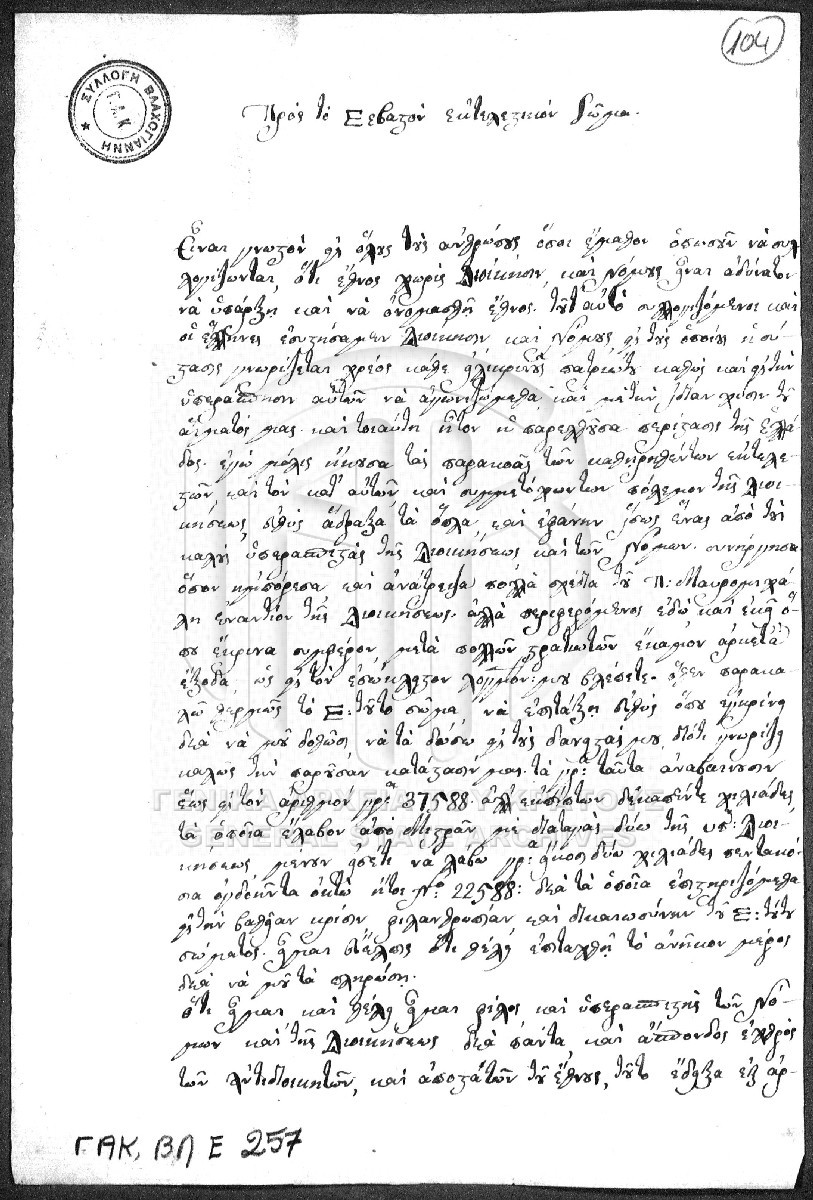 104
ΣΥΛΛΟΓΗ ΒΛΑΧΟΓΙΑΝΝΗ
Γ.Α.Κ
Πρός τό Σεβαστόν εκτελεστικόν Σῶμα.
Εἶναι γνωστόν εἰς ὅλους τοὺς ανθρώπους ὅσοι ἔμαθον ὁπωσοῦν νὰ συλ
λογίζωνται, ὅτι ἔθνος χωρὶς Διοίκησιν, καὶ Νόμους εἶναι αδύνατον
νὰ ὑπάρξῃ καὶ νὰ ὀνομασθῇ ἔθνος. τοῦτ' αὐτὸ συλλογιζόμενοι καὶ
οἱ ἕλληνες ἐσυστήσαμεν Διοίκησιν, καὶ Νόμους εἰς τοὺς ὁποίους ἡ σύ-
στασις γνωρίζεται χρέος κάθε εἰλικρινοῦς πατριώτου καθὼς καὶ εἰς τὴν
ὑπεράσπησιν αὐτῶν νὰ ἀγωνιζώμεθα καὶ μὲ τὴν ἰδίαν χύσιν τοῦ
αἵματός μας. καὶ τοιαύτη ἦτον ἡ παρελθοῦσα περίστασις τῆς ἑλλά
δος. ἐγὼ μόλις ἤκουσα τὰς παρακοὰς τῶν καθηρηθέντων ἐκτελε-
στῶν, καὶ τὸν κατ' αὐτῶν καὶ συμμετόχων των πόλεμον τῆς Διοι-
κήσεως, εὐθὺς ἄδραξα τὰ ὅπλα, καὶ ἐφάνην ἴσως ἕνας ἀπὸ τοὺς
καλοὺς ὑπερασπιστὰς τῆς Διοικήσεως καὶ τῶν Νόμων. συνήργησα
ὅσον ἠμπόρεσα, καὶ ἀνάτρεψα πολλὰ σχέδια τοῦ Π: Μαυρομιχά
λη ἐναντίον τῆς Διοικήσεως. ἀλλὰ περιφερόμενος ἐδῶ καὶ ἐκεῖ ὅ-
που ἔκρινα συμφέρον μετὰ πολλῶν στρατιωτῶν ἔκαμον ἀρκετὰ
ἔξοδα, ὡς εἰς τὸν ἐσώκλειστον λογ/σμόν: μου βλέπετε. ὅθεν παρακα-
λῶ θερμῶς τὸ Σ: τοῦτο σῶμα νὰ ἐπιτάξῃ εὐθὺς ὅπου ἐγκρίνῃ
διὰ νὰ μοῦ δοθῶσι νὰ τὰ δώσω εἰς τοὺς δανειστάς μου, διότι γνωρίζει
καλῶς τὴν παροῦσαν κατάστασίν μας. τὰ γρ: ταῦτα ἀναβαίνουσιν
ἕως εἰς τὸν ἀριθμὸν γρ: 37588. ἀλλ' ἐκπίπτων δεκαπέντε χιλιάδες
τὰ ὁποῖα ἔλαβον ἀπὸ Μιστρᾶν μὲ διαταγὰς δύω τῆς ὑπ: Διοι-
κήσεως μένουν εἰσέτι νὰ λάβω γρ: εἴκοσι δύο χιλιάδες πεντακό-
σια ὀγδοῆντα ὀκτώ ἤτοι Νο: 22588: διὰ τὰ ὁποῖα ἐπιστηριζόμεθα
εἰς τὴν βαθεῖαν κρίσιν φιλανθρωπίαν καὶ δικαιωσύνην τοῦ Σ: τούτου
σώματος. εἶμαι εὔελπις ὅτι θέλει ἐπιταχθῇ τὸ ἀνῆκον μέρος
διὰ νὰ μοῦ τὰ πληρώσῃ.
ὅτι εἶμαι καὶ θέλει εἶμαι φίλος καὶ ὑπερασπιστὴς τῶν Νό-
μων καὶ τῆς Διοικήσεως διὰ πάντα καὶ ἄσπονδος ἐχθρὸς
τῶν ἀντιδιοικητῶν, καὶ ἀποστατῶν τοῦ ἔθνους, τοῦτο ἔδειξα ἐξ ἀρ-
ΓΕΝΙΚΑ ΑΡΧΕΙΑ ΤΟΥ ΚΡΑΤΟΥΣ
GENERAL STATE ARCHIVES
ΓΑΚ, ΒΛ Ε 257